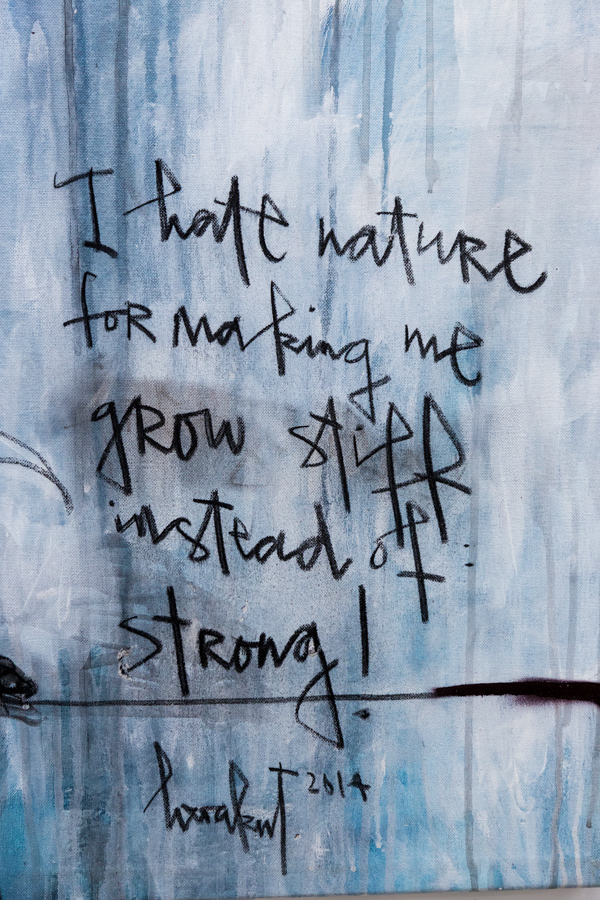 I hate nature
for making me
grow stiff
instead of:
strong!
herakut 2014